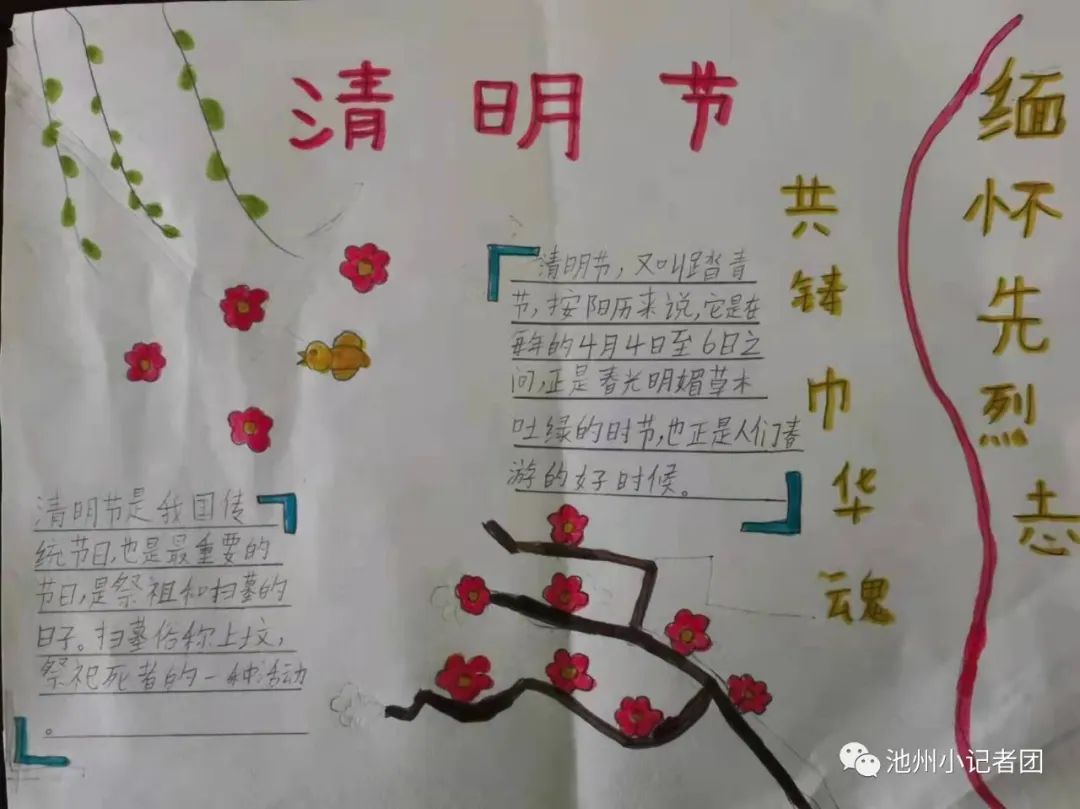 清明节
缅怀先烈志
共铸巾华魂
清明节，又叫踏青
节，按阳历来说，它是在
每年的4月4日至6日之
间，正是春光明媚草木
吐绿的时节，也正是人们春
游的好时候。
清明节是我国传
统节日，也是最重要的
节日，是祭祖和扫墓的
日子。扫墓俗称上坟，
祭祀死者的一种活动
。
池州小记者团